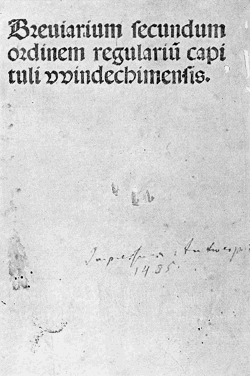 Breuiarium ſecundum
ordinem regulariū capi
tuli vvindechimenſis.
Impressum Antwerpi
1485